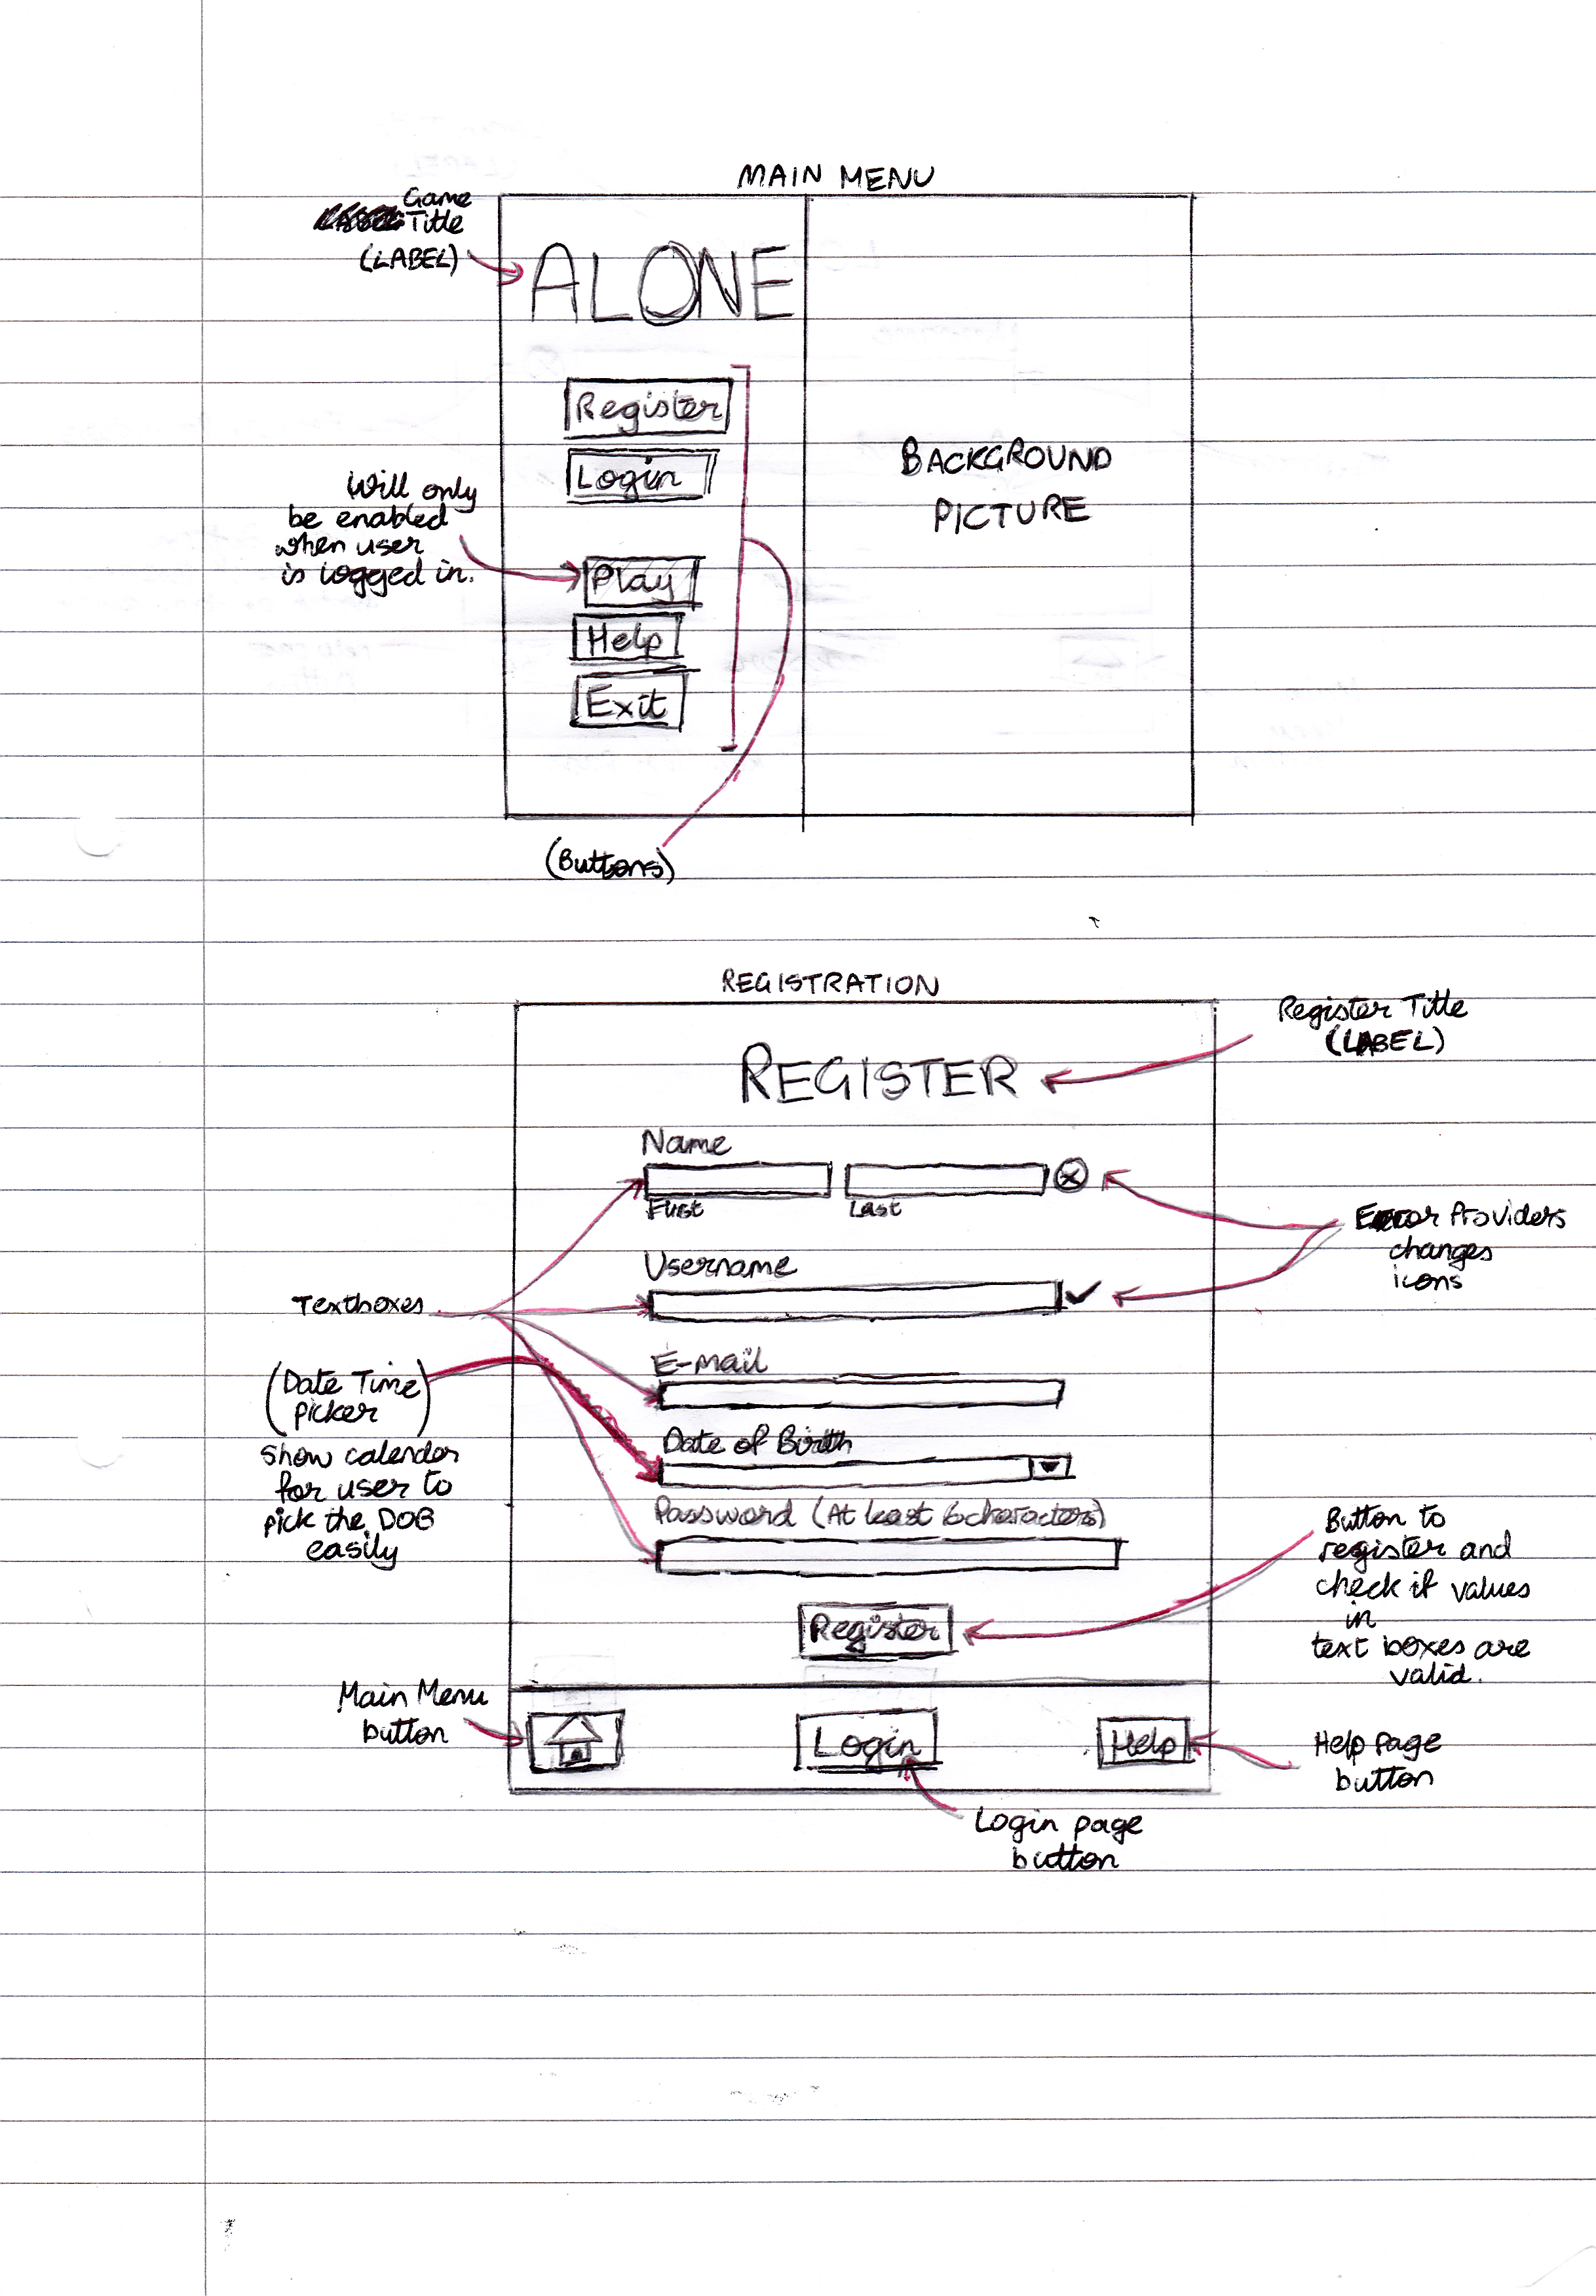 MAIN MENU
Game
Title
(LABEL)
ALONE
Register
Login
BACKGROUND
PICTURE
Will only
be enabled
when user
is logged in.
Play
Help
Exit
(Buttons)
REGISTRATION
Register Title
(LABEL)
REGISTER
Name
First
Last
Error Providers
changes
icons
Username
Textboxes
E-mail
(Date Time
picker)
show calender
for user to
pick the DOB
easily
Date of Birth
Password (At least 6 characters)
Button to
register and
check if values
in
text boxes are
valid.
Register
Main Menu
button
Login
Help
Help page
button
Login page
button